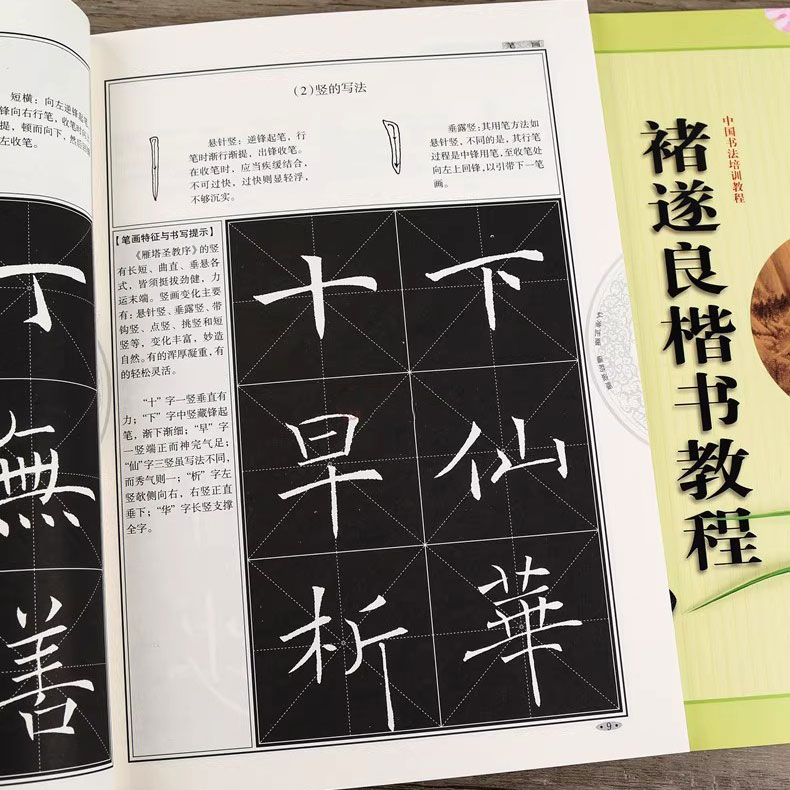 短横：向左逆锋起笔
锋向右行笔，收笔时
提，顿而向下，然后
左收笔。
無
善
笔 画
（2）竖的写法
悬针竖：逆锋起笔，行
笔时渐行渐提，出锋收笔。
在收笔时，应当疾缓结合，
不可过快，过快则显轻浮，
不够沉实。
垂露竖：其用笔方法如
悬针竖，不同的是，其行笔
过程是中锋用笔，至收笔处
向左上回锋，以引带下一笔
画。
【笔画特征与书写提示】
《雁塔圣教序》的竖
有长短、曲直、垂悬各
式，皆须挺拔劲健，力
运末端。竖画变化主要
有：悬针竖、垂露竖、带
钩竖、点竖、挑竖和短
竖等，变化丰富，妙造
自然。有的浑厚凝重，有
的轻松灵活。
“十”字一竖垂直有
力；“下”字中竖藏锋起
笔，渐下渐细；“早”字
一竖端正而神完气足；
“仙”字三竖虽写法不同，
而秀气则一；“析”字左
竖欹侧向右，右竖正直
垂下；“华”字长竖支撑
全字。
十 下
早 仙
析 華
9
中国书法培训教程
褚遂良楷书教程